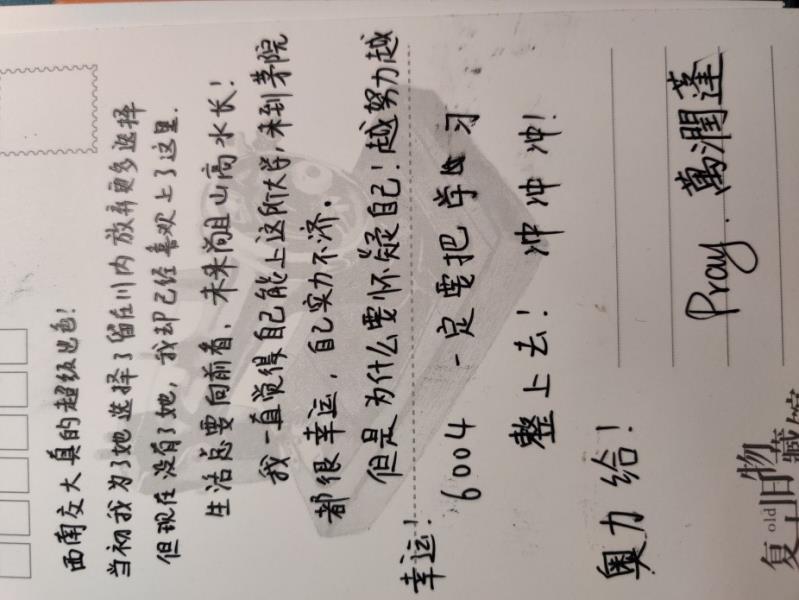 西南交大真的超级出色！
当初我为了她选择了留在川内放弃更多选择
但现在没有了她，我却已经喜欢上了这里.
生活总要向前看，未来尚且山高水长！
我一直觉得自己能上这所大学，来到茅院
都很幸运，自己实力不济。
但是为什么要怀疑自己！越努力越
幸运！
6004 一定要把学习
整上去！冲冲冲！
奥力给！
Pray. 萬潤蓬
复旧物
old 藏馆